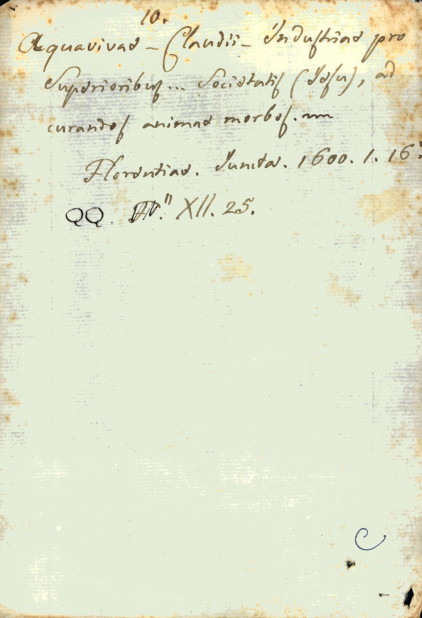 10.
Aquavivae - Claudii - Industriae pro
Superioribus... Societatis (Iesu), ad
curandos animae morbos.
Florentiae. Iuncta. 1600. 1. 16.
QQ XII. 25.